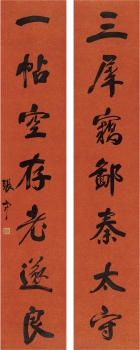 三犀竊鄙秦太守
一帖空存老遂良
張